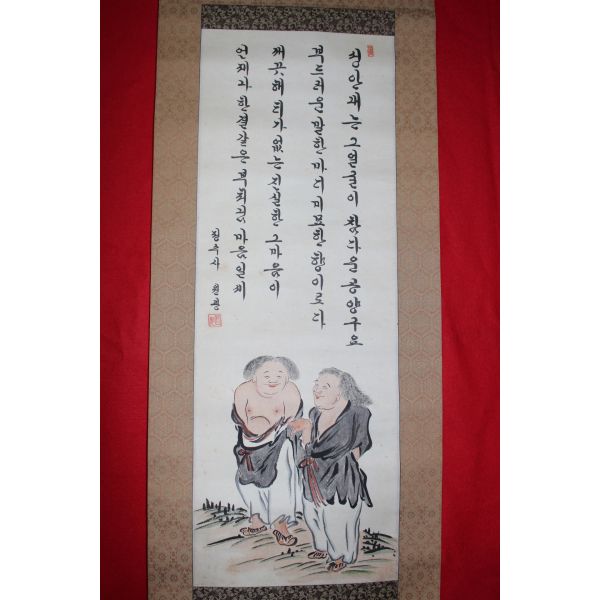 성안내는 그얼굴이 참다운 공양구요
부드러운 말한마디 미묘한 향이로다
깨끗해 티가없는 진실한 그마음이
언제나 한결같은 부처님 마음일세
정수사